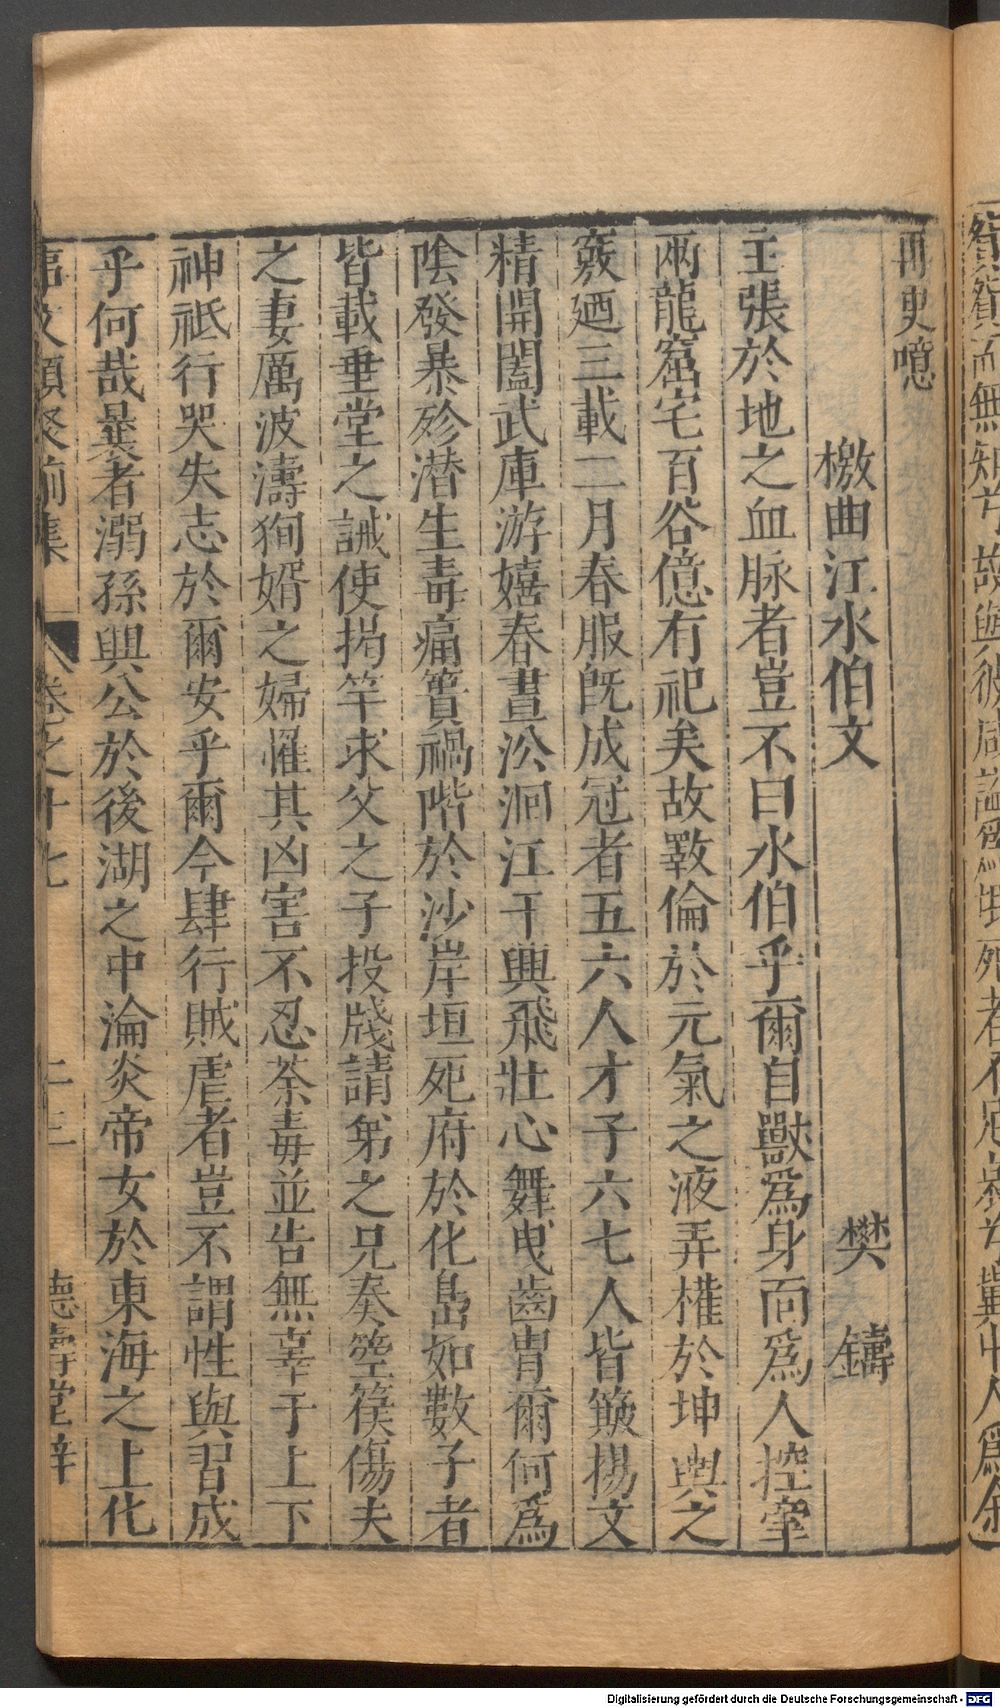 再史噫
檄曲江水伯文　樊鑄
主張於地之血脉者豈不曰水伯乎爾自獸爲身而爲人控挐
兩龍窟宅百谷億有祀矣故斁倫於元氣之液弄權於坤輿之
竅廼三載二月春服旣成冠者五六人才子六七人皆簸揚文
精開闔武庫游嬉春晝㳂洄江干興飛壯心舞曵齒胄爾何爲
陰發暴殄潜生毒痛簣禍階於沙岸垣死府於化島如數子者
皆載垂堂之誡使揭竿求父之子投牋請弟之兄奏箜篌傷夫
之妻厲波濤狥婿之婦惟其凶害不忍荼毒並告無辜于上下
神祗行哭失志於爾安乎爾今肆行賊虐者豈不謂性與習成
乎何哉曩者溺孫興公於後湖之中淪炎帝女於東海之上化
卷之十七　二三　德壽堂梓
Digitalisierung gefördert durch die Deutsche Forschungsgemeinschaft - DFG